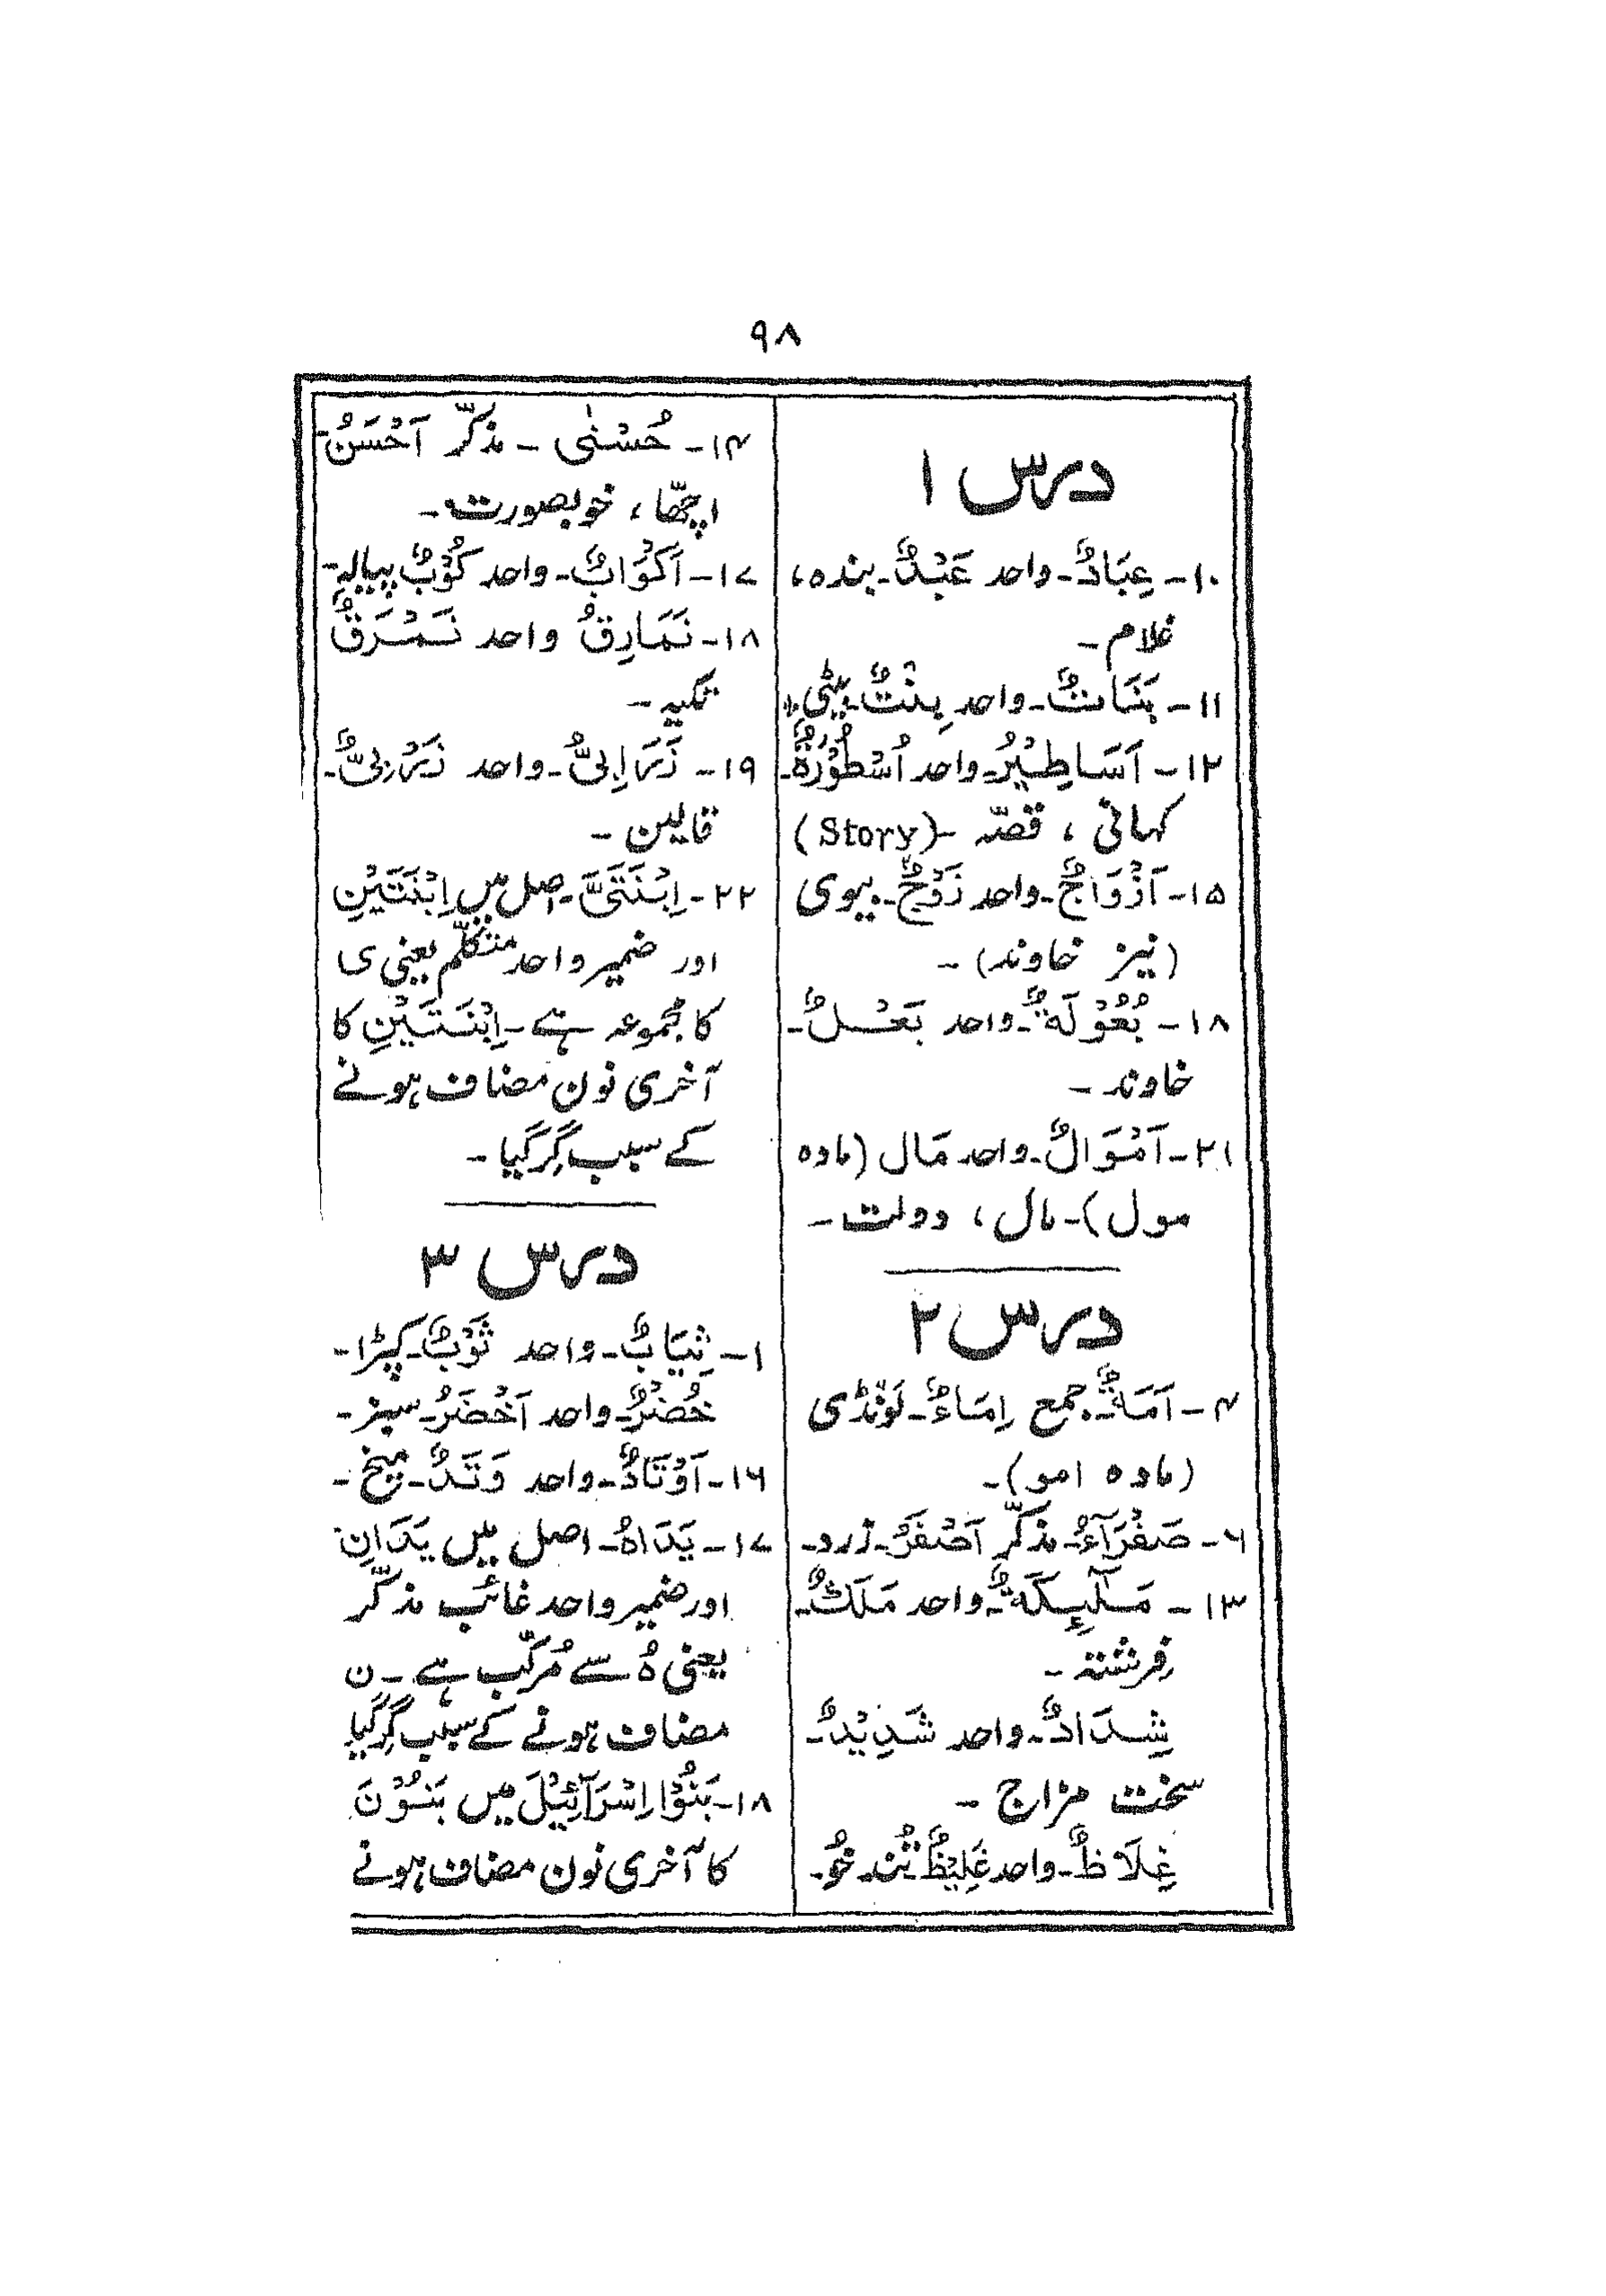 ۹۸
درس ۱
۱۰- عِبَادٌ- واحد عَبْدٌ- بندہ،
غلام-
۱۱- بَنَاتٌ- واحد بِنْتٌ- بیٹی-
۱۲- اَسَاطِیْرُ- واحد اُسْطُوْرَةٌ-
کہانی ، قصّہ -(Story)
۱۵- اَزْوَاجٌ- واحد زَوْجٌ- بیوی
(نیز خاوند) -
۱۸- بُعُوْلَةٌ- واحد بَعْلٌ-
خاوند-
۲۱- اَمْوَالٌ- واحد مَال (مادہ
مول)- مال ، دولت-
درس ۲
۴- اَمَةٌ- جمع اِمَاءٌ- لَونڈی
(مادہ امو)-
۶- صَفْرَآءُ- مذکّر اَصْفَرُ- زرد-
۱۳- مَلٰٓئِکَةٌ- واحد مَلَكٌ-
فِرشتہ -
شِدَادٌ- واحد شَدِیْدٌ-
سخت مزاج -
غِلَاظٌ- واحد غَلِیْظٌ تُند خُو-
۱۴- حُسْنٰی - مذکّر اَحْسَنُ-
اچھّا ، خوبصورت-
۱۷- اَکْوَابٌ- واحد کُوْبٌ پیالہ-
۱۸- نَمَارِقُ واحد نَمْرَقٌ
تکیہ -
۱۹- زَرَابِیُّ- واحد زَرْبِیٌّ-
قالین -
۲۲- اِبْنَتَیَّ- اصل میں اِبْنَتَیْنِ
اور ضمیر واحد متکلّم یعنی ی
کا مجموعہ ہے- اِبْنَتَیْنِ کا
آخری نون مضاف ہونے
کے سبب گِر گیا -
درس ۳
۱- ثِیَابٌ- واحد ثَوْبٌ- کپڑا-
خُضْرٌ- واحد اَخْضَرُ- سبز-
۱۶- اَوْتَادٌ- واحد وَتَدٌ- میخ-
۱۷- یَدَاہُ- اصل میں یَدَانِ
اور ضمیر واحد غائب مذکّر
یعنی ہُ سے مُرکّب ہے- ن
مضاف ہونے کے سبب گِر گیا
۱۸- بَنُوْا اِسْرَآئِیْلَ میں بَنُوْنَ
کا آخری نون مضاف ہونے